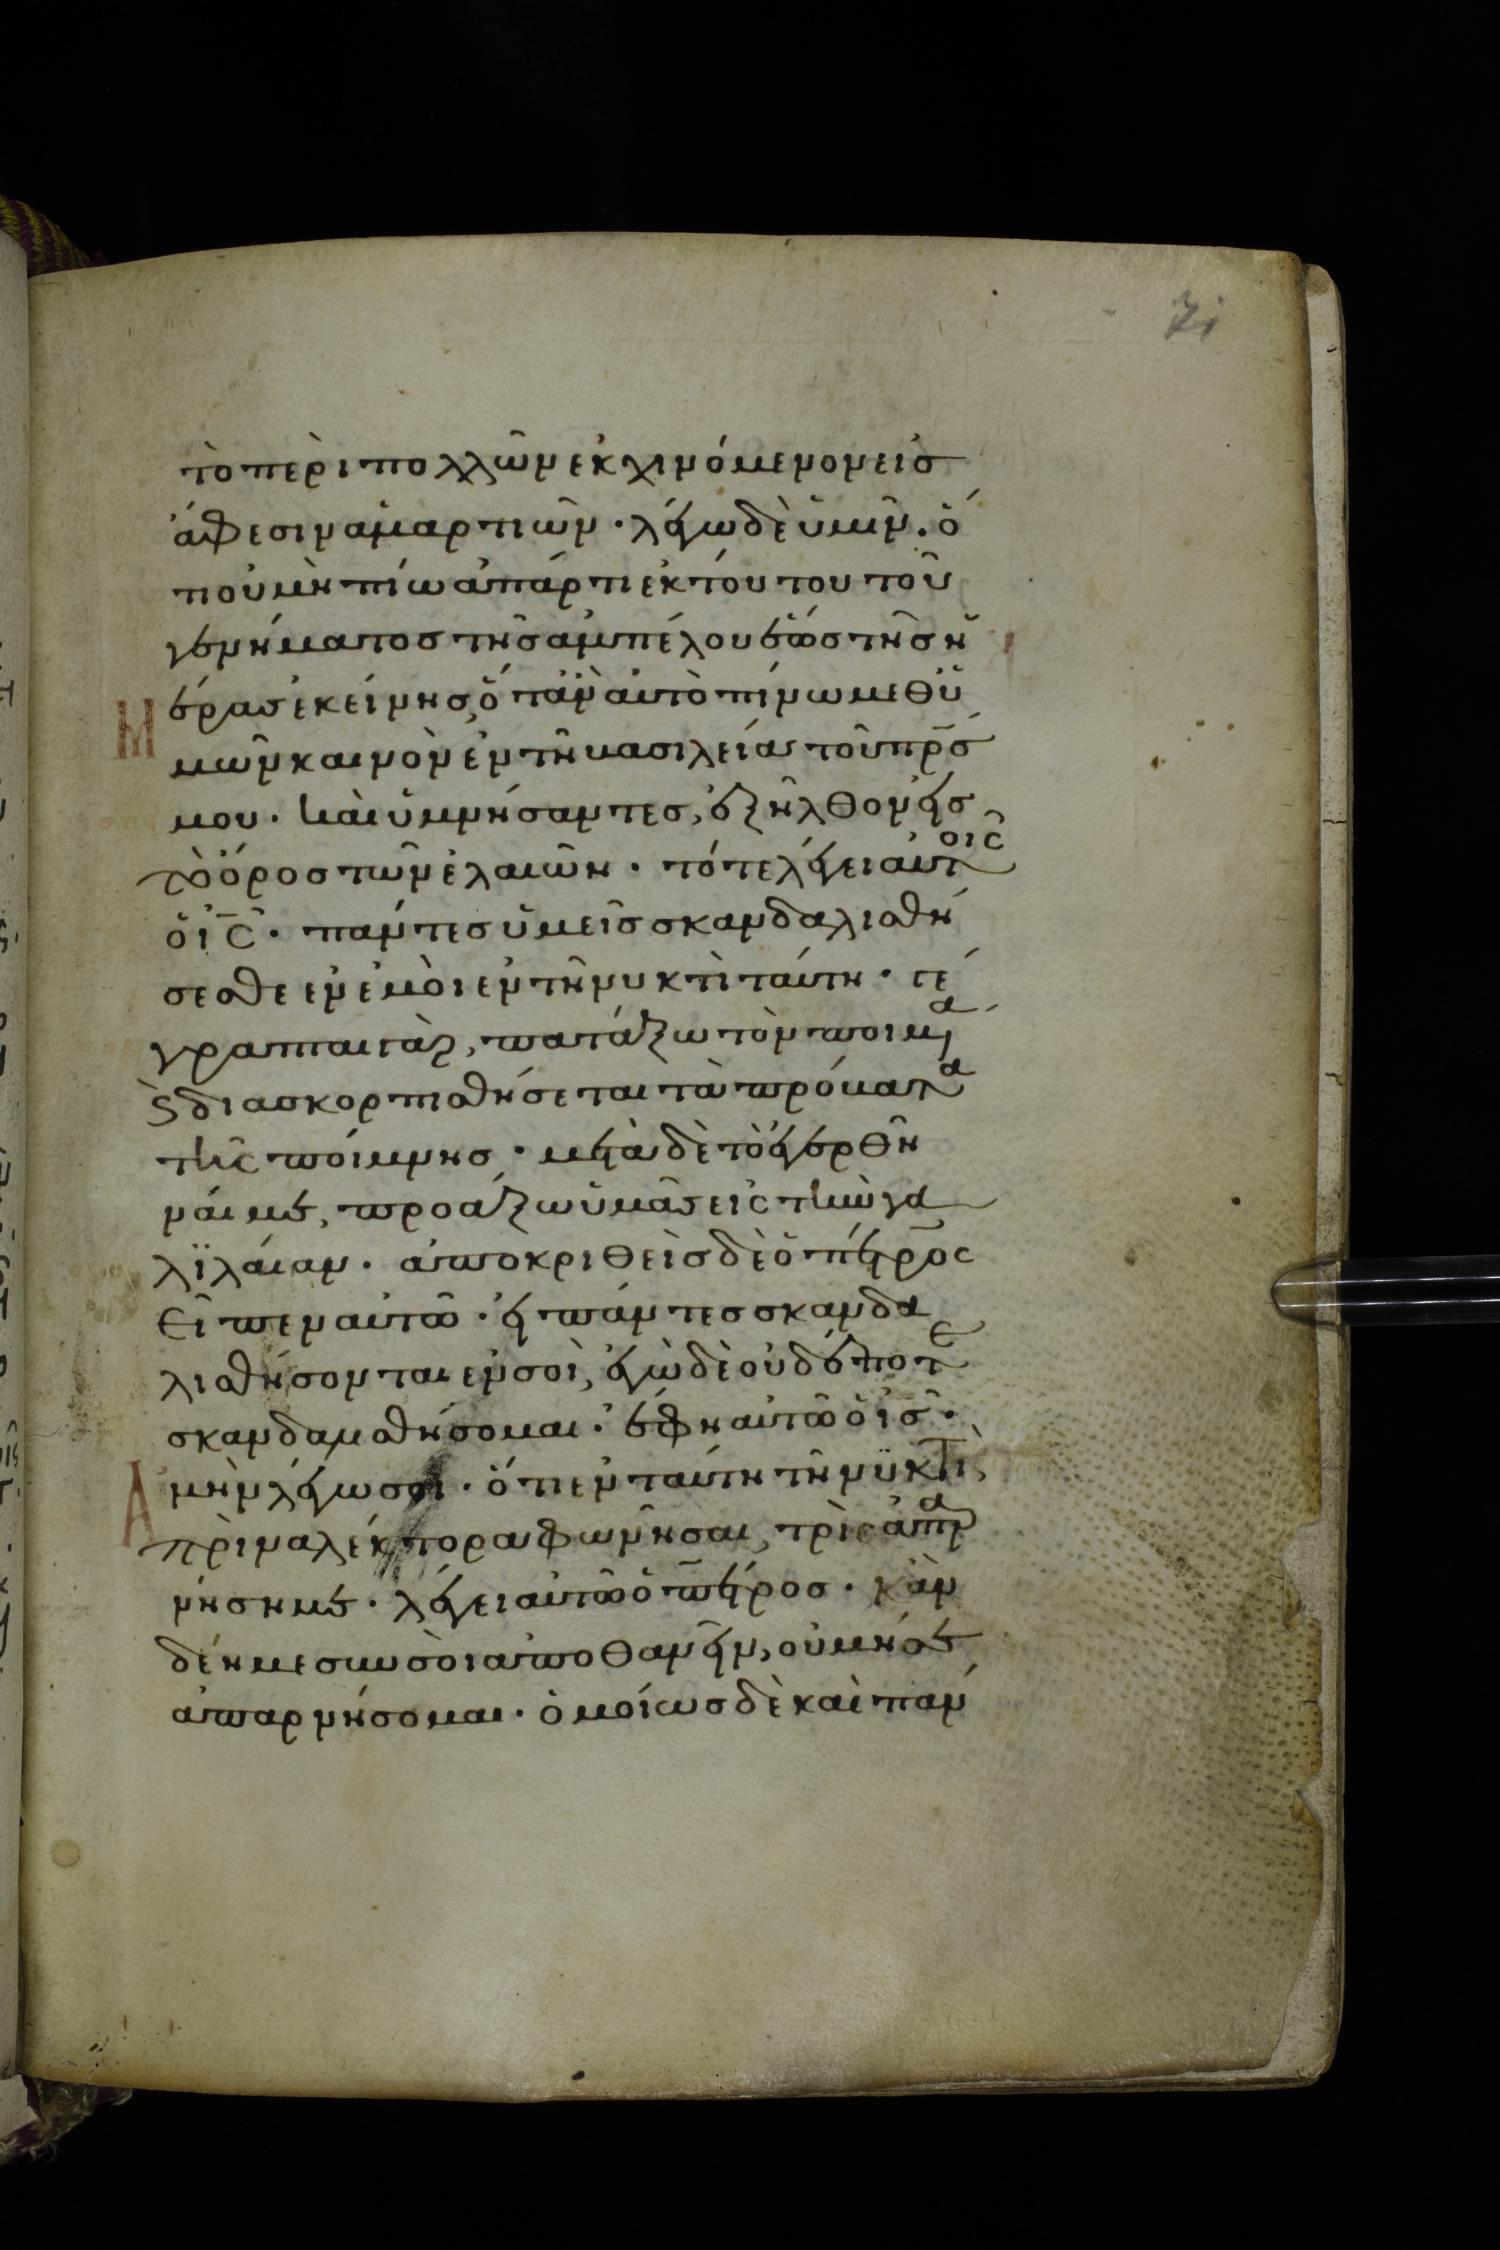 71
τὸ περὶ πολλῶν ἐκχινόμενον εἰσ
ἄφεσιν ἁμαρτιῶν · λέγω δὲ ὑμῖν · ὅ
τι οὐ μὴ πίω ἀπάρτι ἐκ τούτου τοῦ
γενήματοσ τῆσ ἀμπέλου ἕωσ τῆσ ἡ
μέρασ ἐκείνησ, ὅταν αὐτὸ πίνω μεθ ὑ
μῶν καινὸν ἐν τῆ βασιλεία τοῦ πρσ
μου · καὶ ὑμνήσαντεσ, ἐξῆλθον εἰσ
τὸ ὄροσ τῶν ἐλαιῶν · τότε λέγει αὐτοῖς
ὁ ις · πάντεσ ὑμεῖσ σκανδαλισθή
σεσθε ἐν ἐμοὶ ἐν τῆ νυκτὶ ταύτη · γέ
γραπται γὰρ, πατάξω τὸν ποιμένα
ϗ διασκορπισθήσεται τὰ πρόβατα
τῆς ποίμνησ · μετὰ δὲ τὸ ἐγερθῆ
ναί με, προάξω ὑμᾶσ εἰς τὴν γα
λϊλαίαν · ἀποκριθεὶσ δὲ ὁ πέτρος
εἶπεν αὐτῶ · εἰ πάντεσ σκανδα
λισθήσονται ἐν σοὶ, ἐγὼ δὲ οὐδέποτε
σκανδαλισθήσομαι · ἔφη αὐτῶ ὁ ισ ·
Ἀμὴν λέγω σοι · ὅτι ἐν ταύτη τῆ νϋκτὶ,
πρὶν ἀλέκτορα φωνῆσαι, τρὶς ἀπαρ
νήση με · λέγει αὐτῶ ὁ πέτροσ · κἂν
δέη με σὺν σοὶ ἀποθανεῖν, οὐ μή σε
ἀπαρνήσομαι · ὁμοίωσ δὲ καὶ πάν